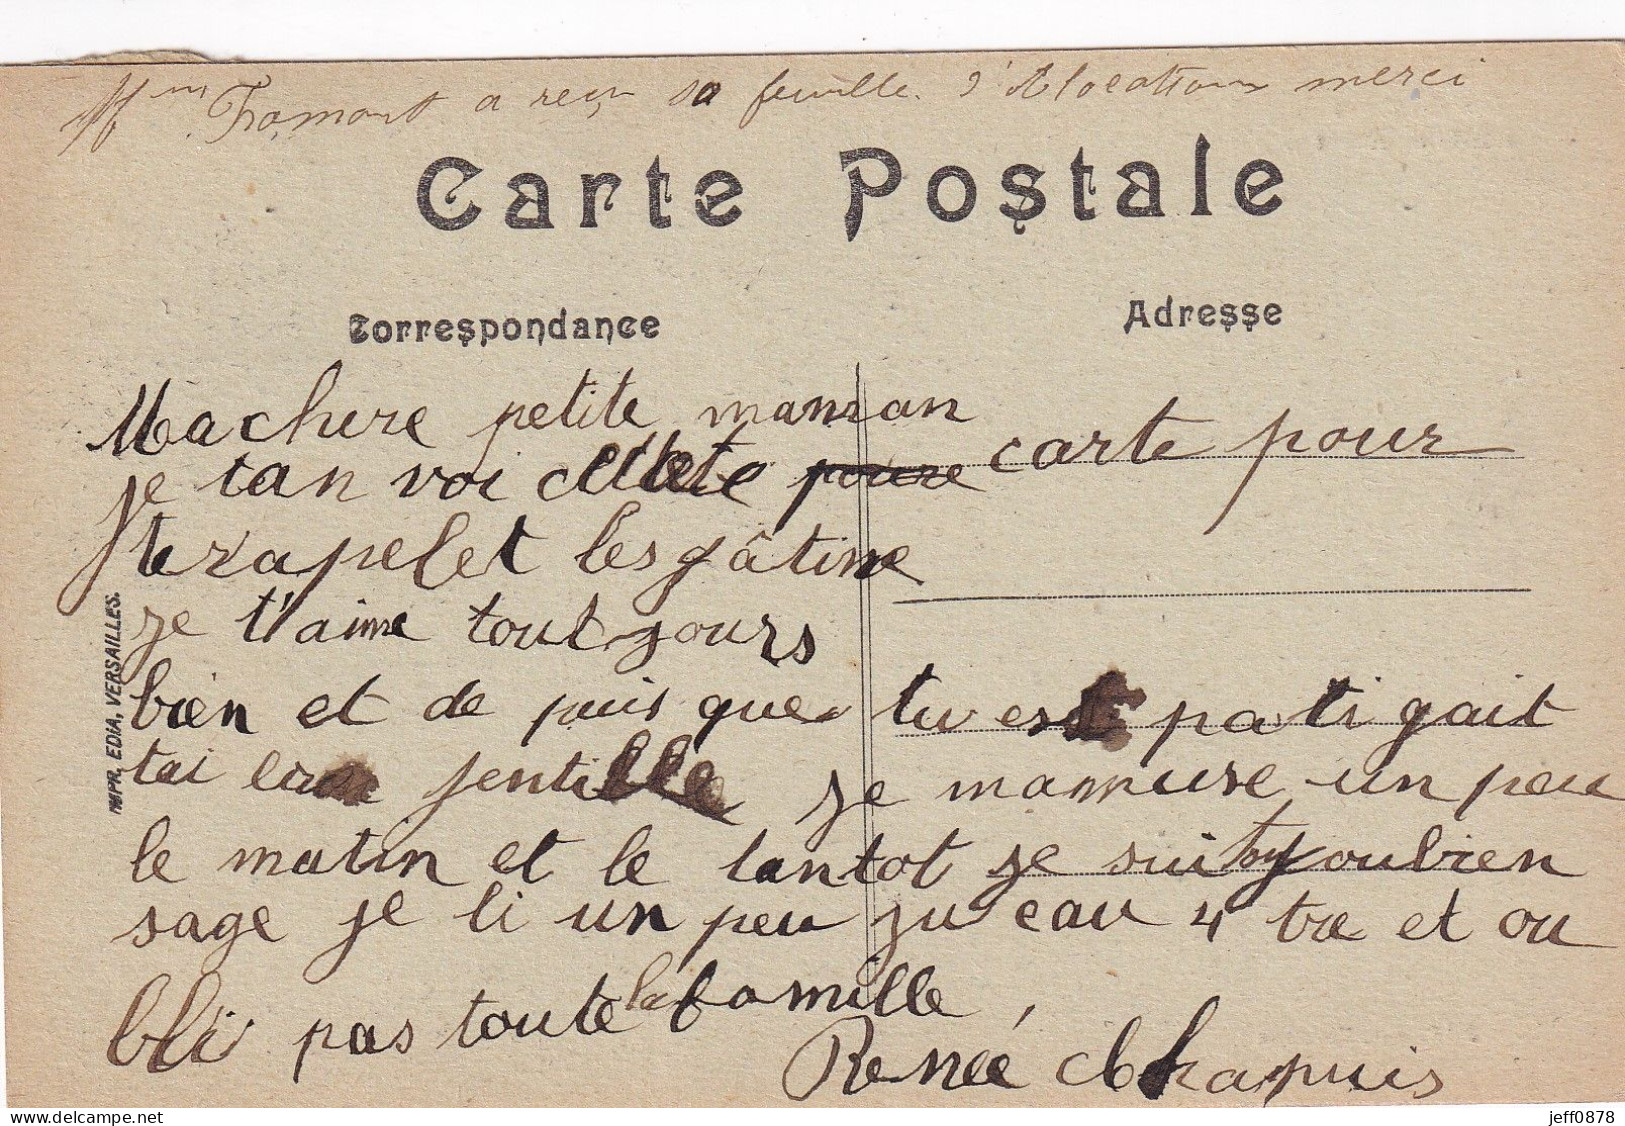 Mme Fromont a reçu sa feuille d'Alocation merci
Carte Postale
Correspondance
Adresse
Machere petite maman
je tan voi cette carte pour
te rapelet les gâtine
je t'aime toutjours
bien et de puis que tu est pati gait
tai jentille je mamuse un peu
le matin et le tantot je suit oubien
sage je li un peu ju eau 4 tre et ou
bli pas toute la famille,
Renée Chapuis
IMPR. EDIA, VERSAILLES.
jeff0878